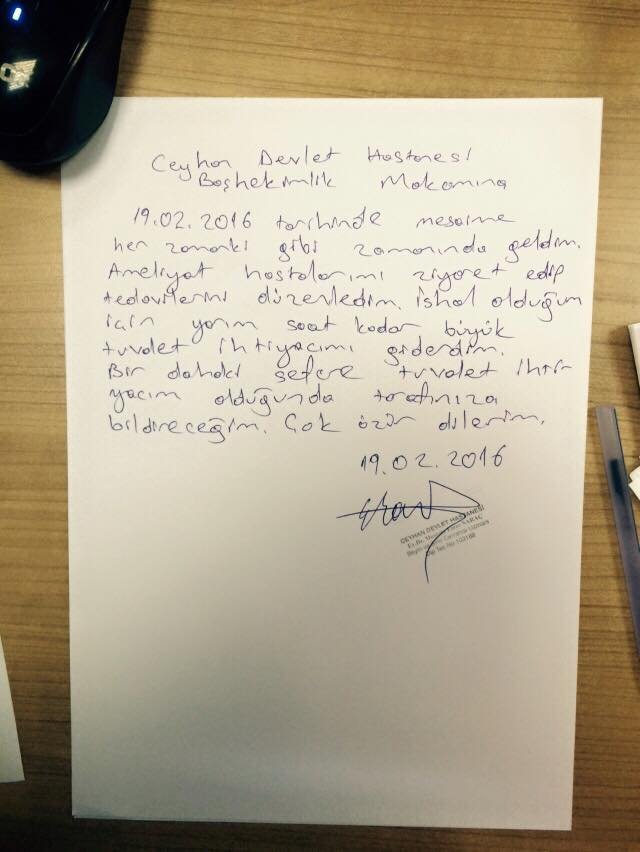 Ceyhan Devlet Hastanesi
Başhekimlik Makamına
19.02.2016 tarihinde mesaime
her zamanki gibi zamanında geldim.
Ameliyat hastalarımı ziyaret edip
tedavilerini düzenledim. İshal olduğum
için yarım saat kadar büyük
tuvalet ihtiyacımı giderdim.
Bir dahaki sefere tuvalet ihti-
yacım olduğunda tarafınıza
bildireceğim. Çok özür dilerim.
19.02.2016
CEYHAN DEVLET HASTANESİ